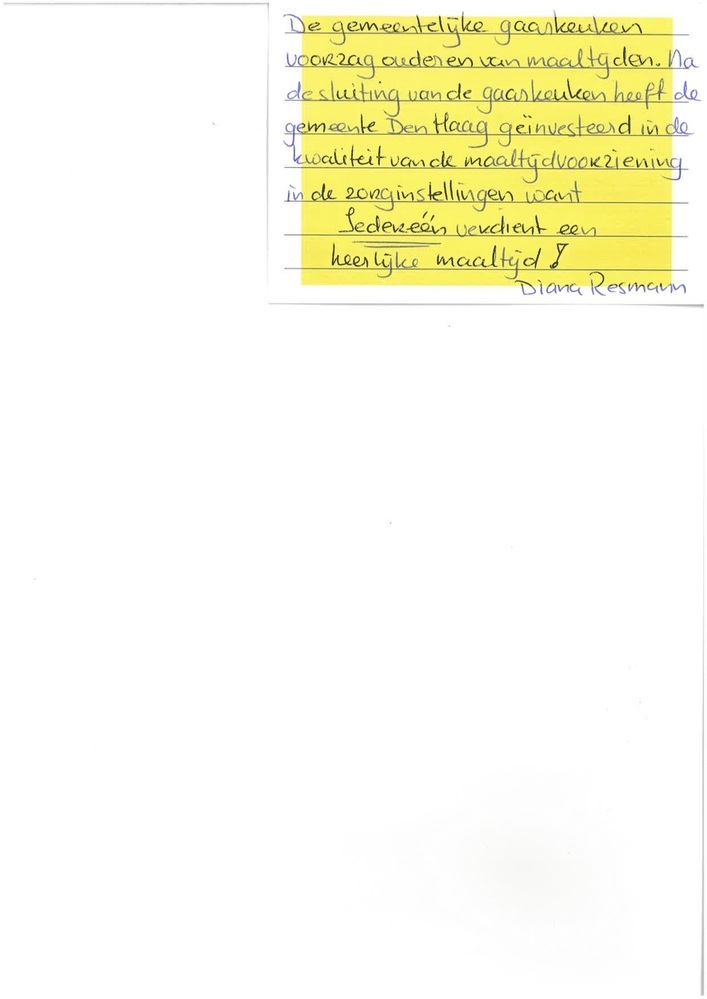 De gemeentelijke gaarkeuken
voorzag ouderen van maaltijden. Na
de sluiting van de gaarkeuken heeft de
gemeente Den Haag geïnvesteerd in de
kwaliteit van de maaltijdvoorziening
in de zorginstellingen want
Iedereéén verdient een
heerlijke maaltijd!
Diana Resmann